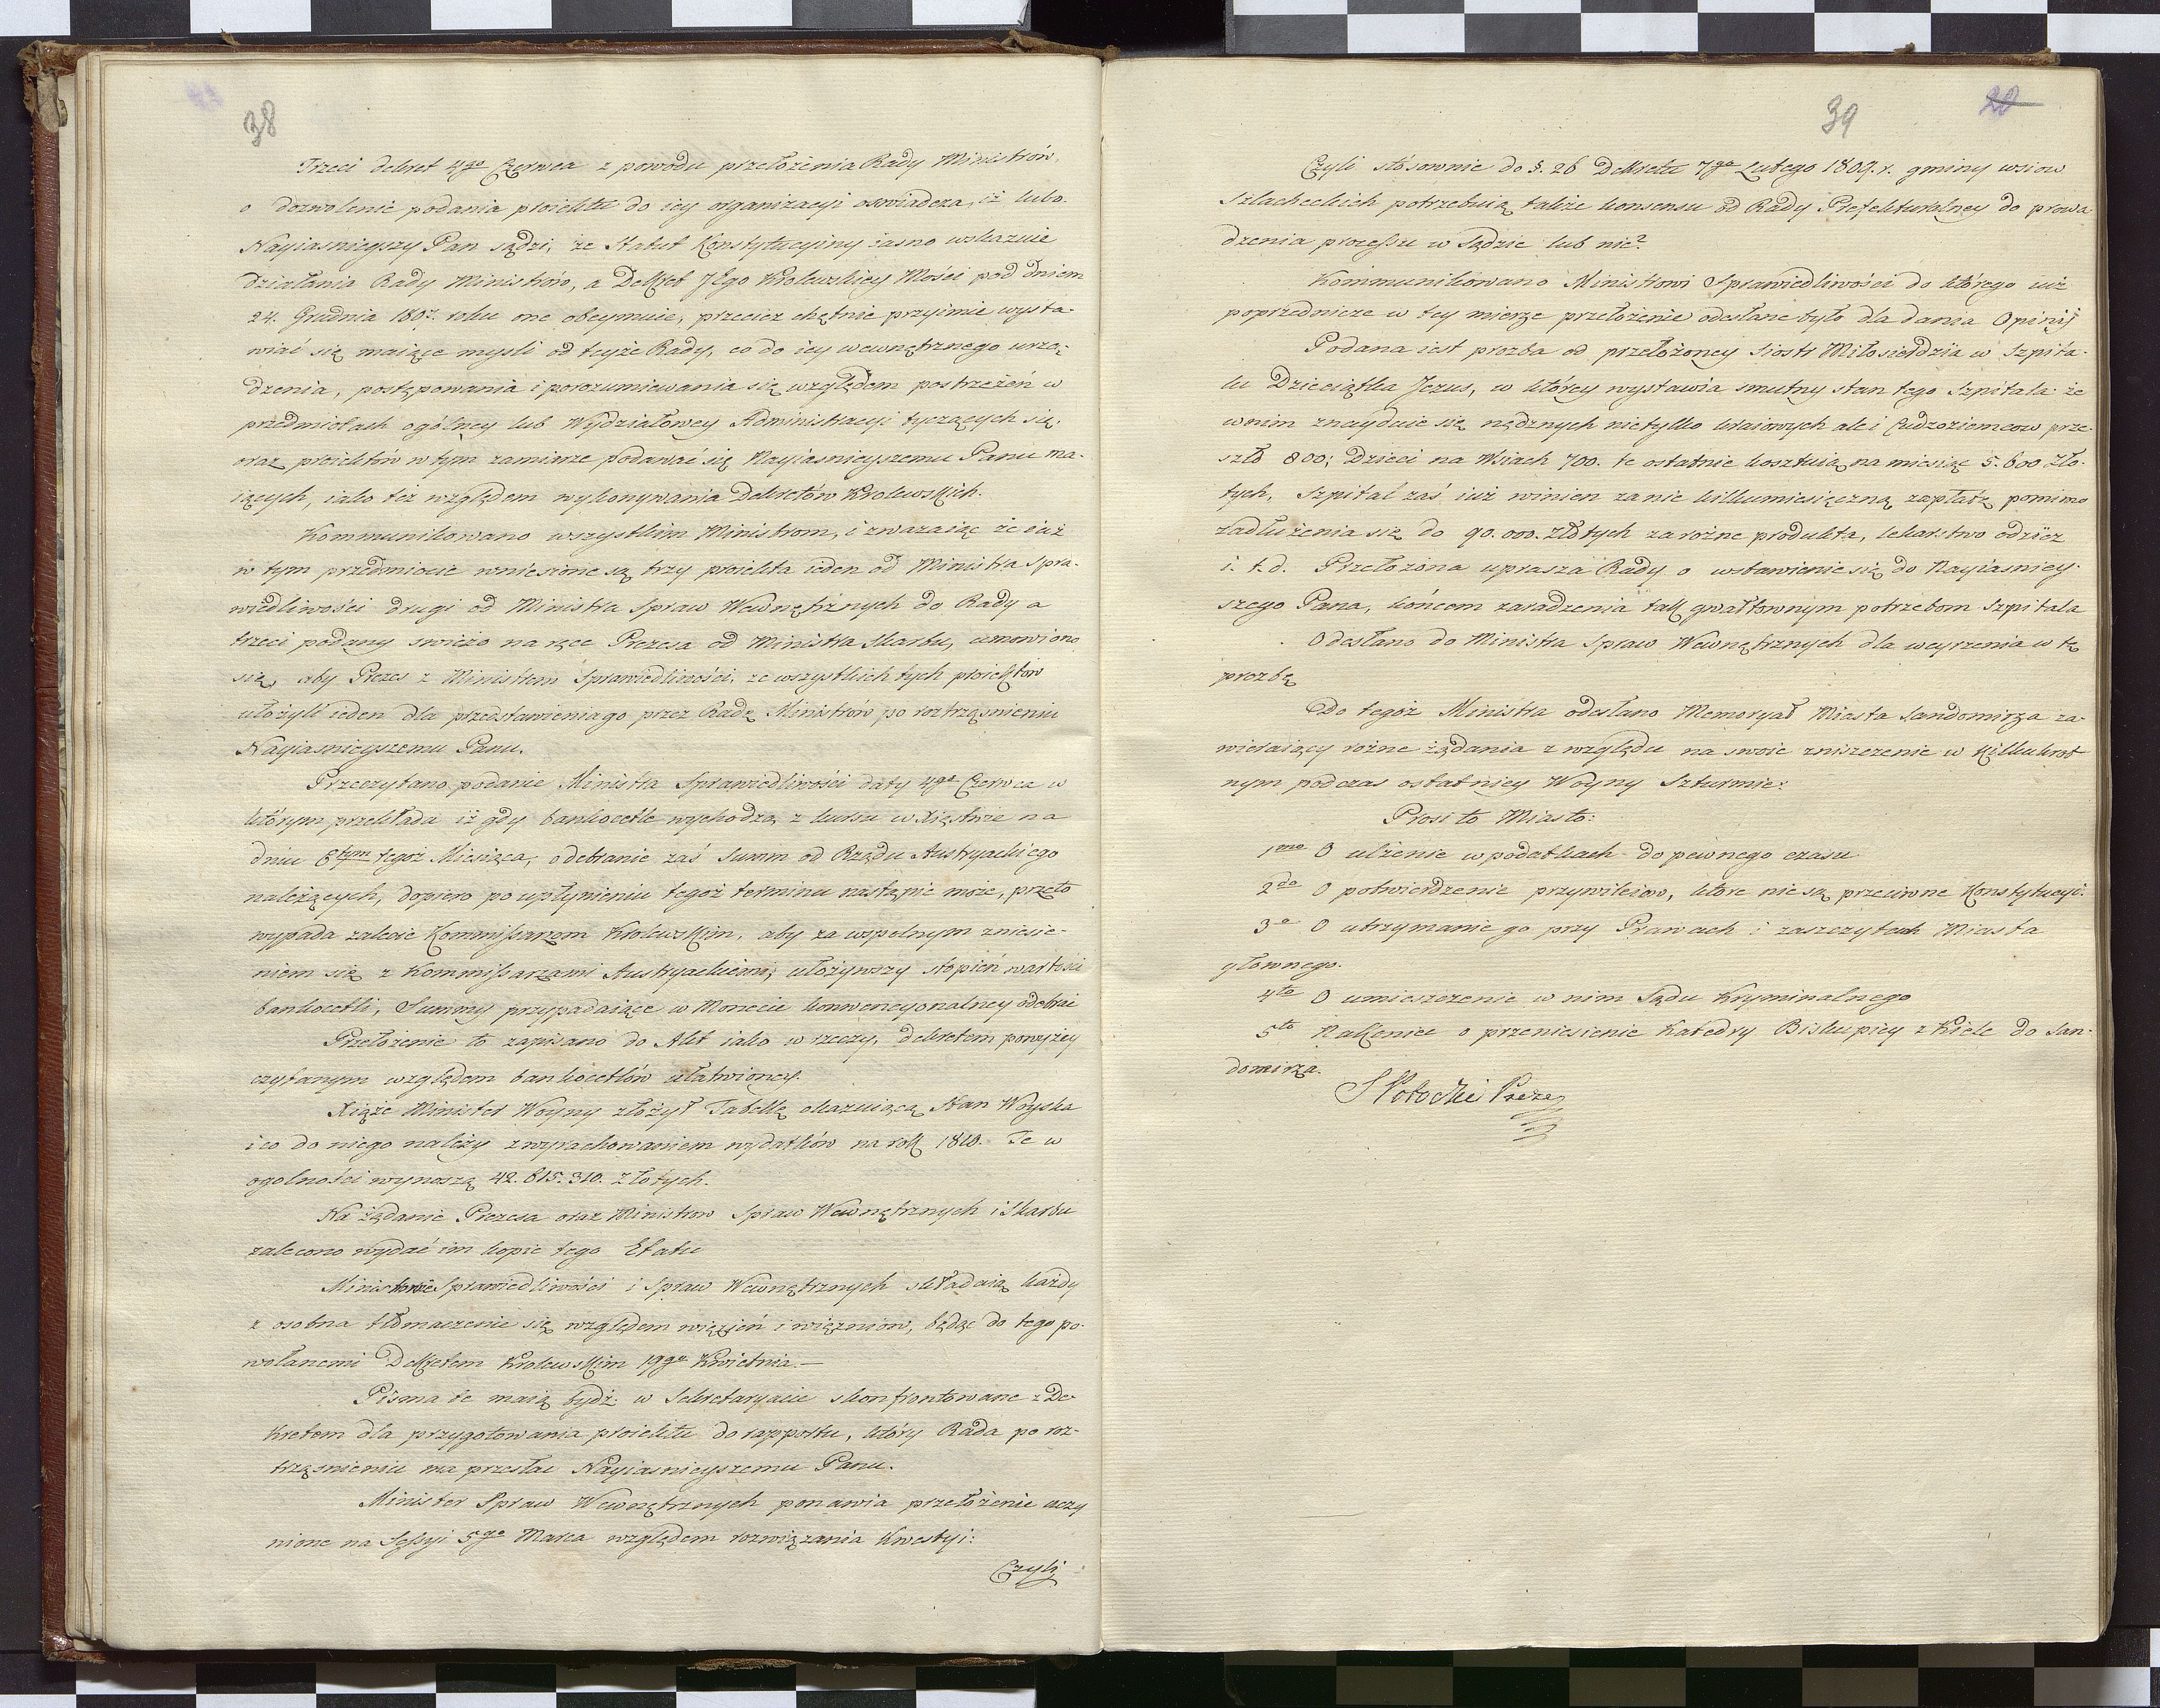 38
Trzeci dekret 4go Czerwca z powodu przełożenia Rady Ministrów,
o dozwolenie podania proiektu do iey organizacyi oswiadcza, iż lubo
Nayiasnieyszy Pan sądzi, że Statut Konstytucyiny iasno wskazuie
działania Rady Ministrów, a Dekret JEgo Krolewskiey Mości pod dniem
24. Grudnia 1807. roku one obeymuie, przecież chętnie przyimie wysta-
wiać się maiące mysli od teyże Rady, co do iey wewnętrznego urzą-
dzenia, postępowania i porozumiewania się względem postrzeżeń w
przedmiotach ogólney lub Wydziałowey Administracyi tyczących się,
oraz proiektów w tym zamiarze podawać się Nayiasnieyszemu Panu ma-
iących, iako też względem wykonywania Dekretów Krolewskich.
Kommunikowano wszystkim Ministrom, i zwazaiąc że iuż
w tym przedmiocie wniesione są trzy proiekta ieden od Ministra Spra-
wiedliwości drugi od Ministra Spraw Wewnętrznych do Rady a
trzeci podany swieżo na ręce Prezesa od Ministra Skarbu, umowiono
się, aby Prezes z Ministrem Sprawiedliwości, ze wszystkich tych proiektów
ułożyli ieden dla przedstawienia go przez Radę Ministrów po roztrząśnieniu
Nayiasnieyszemu Panu.
Przeczytano podanie Ministra Sprawiedliwości daty 4go Czerwca w
którym przekłada iż gdy bankocetle wychodzą z kursu w Xięstwie na
dniu 6tym tegoż Miesiąca, odebranie zaś Summ od Rządu Austryackiego
należących, dopiero po upłynieniu tegoż terminu nastąpić może, przeto
wypada zalecić Kommissarzom Krolewskim, aby za wspolnym zniesie-
niem się z Kommissarzami Austryackiemi, ułożywszy stopień wartości
bankocetli, Summy przypadaiące w Monecie konwencyonalney odebrać
Przełożenie to zapisano do Akt iako w rzeczy, dekretem powyżey
czytanym względem bankocetlów ułatwioney.
Xiąże Minister Woyny złożył Tabellę okazuiącą Stan Woyska
i co do niego należy z wyrachowaniem wydatków na rok 1810. Te w
ogolności wynoszą 42.615.310. Złotych.
Na żądanie Prezesa oraz Ministrow Spraw Wewnętrznych i Skarbu
zalecono wydać im kopie tego Etatu
Ministrowie Sprawiedliwości i Spraw Wewnętrznych składaią każdy
z osobna tłomaczenie się względem więzień i więzniów, będąc do tego po-
wołanemi Dekretem Krolewskim 19go Kwietnia.—
Pisma te maią bydź w Sekretaryacie skonfrontowane z De-
kretem dla przygotowania proiektu do rapportu, który Rada po roz-
trząsnieniu ma przesłać Nayiasnieyszemu Panu.
Minister Spraw Wewnętrznych ponawia przełożenie uczy
nione na Sessyi 5go Marca względem rozwiązania Kwestyi:
Czyli
39
20
Czyli stósownie do §. 26 Dekretu 7go Lutego 1809. r. gminy wsiow
Szlacheckich potrzebuią także konsensu od Rady Prefekturalney do prowa
dzenia processu w Sądzie lub nie?
Kommunikowano Ministrowi Sprawiedliwości do którego iuż
poprzednicze w tey mierze przełożenie odesłane było dla dania Opinij
Podana iest prozba od przełożoney Siostr Miłosierdzia w Szpita-
lu Dzieciątka Jezus, w którey wystawia smutny stan tego Szpitala że
w nim znayduie się nędznych nietylko kraiowych ale i Cudzoziemcow prze-
szło 800; Dzieci na Wsiach 700. te ostatnie kosztuią na miesiąc 5.600 Zło-
tych, Szpital zaś iuż winien za nie kilkumiesięczną zapłatę pomimo
zadłużenia się do 90.000. Złotych za rożne produkta, lekarstwo odzież
i. t. d. Przełożona uprasza Rady o wstawienie się do Nayiasniey-
szego Pana, końcem zaradzenia tak gwałtownym potrzebom Szpitala
Odesłano do Ministra Spraw Wewnętrznych dla weyrzenia w tę
prozbę
Do tegóż Ministra odesłano Memoryał Miasta Sandomirza za-
wieraiący rożne żądania z względu na swoie zniszczenie w Kilkukrot
nym podczas ostatniey Woyny Szturmie:
Prosi to Miasto:
1mo O ulżenie w podatkach do pewnego czasu
2do O potwierdzenie przywileiow, ktore nie są przeciwne Konstytucyi.
3o O utrzymanie go przy Prawach i zaszczytach Miasta
głownego.
4to O umieszczenie w nim Sądu Kryminalnego
5to Nakoniec o przeniesienie Katedry Biskupiey z Kielc do San-
domirza.
S Potocki Prezes